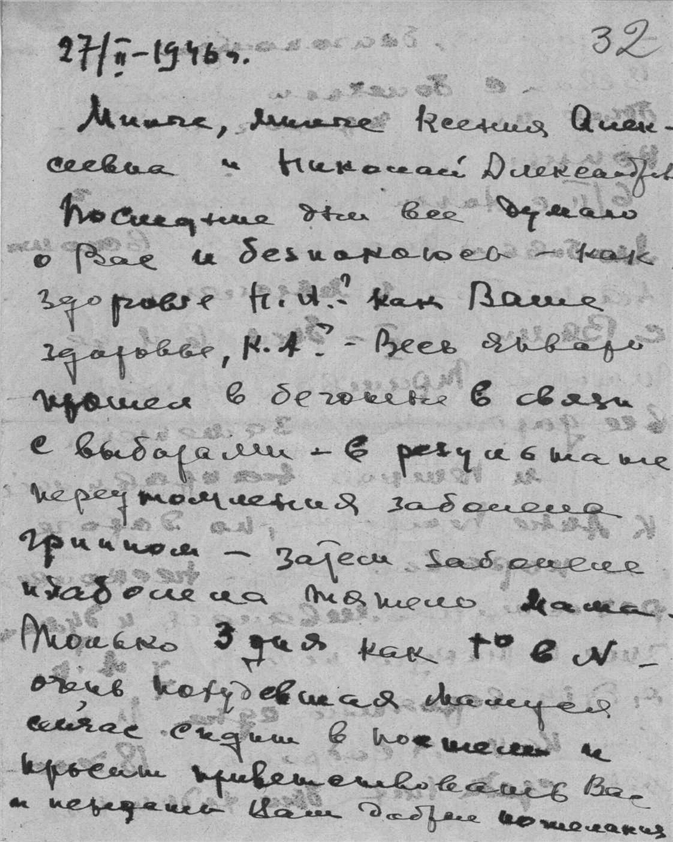 32
27/II-1946 г.
Милые, милые Ксения Алек-
сеевна и Николай Александров
Последние дни все думаю
о Вас и безпокоюсь - как
здоровье Н.А.? как Ваше
здоровье, К.А.? - Весь Январь
прошел в беготне в связи
с выборами - в результате
переутомления заболела
гриппом - затем заболели
и заболела тяжело мама.
Только 3 дня как t° в N -
очень похудевшая мамуся
сейчас сидит в постели и
просит приветствовать Вас
и передать Вам добрые пожелания